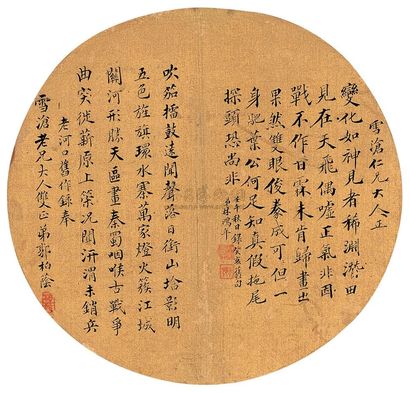 雪滄仁兄大人正
變化如神見者稀淵潛田
見在天飛偶噓正氣非因
戰不作甘霖未肯歸畫出
果然雙眼俊豢成可但一
身肥葉公何足知真假拖尾
探頭恐尚非
吹笳擂鼓遠聞聲落日銜山塔影明
五色旌旗環水寨萬家燈火簇江城
關河形勝天區畫秦蜀咽喉古戰爭
曲突徙薪原上策況聞汧渭未銷兵
老河口舊作錄奉
雪滄老兄大人雙正弟郭柏蔭